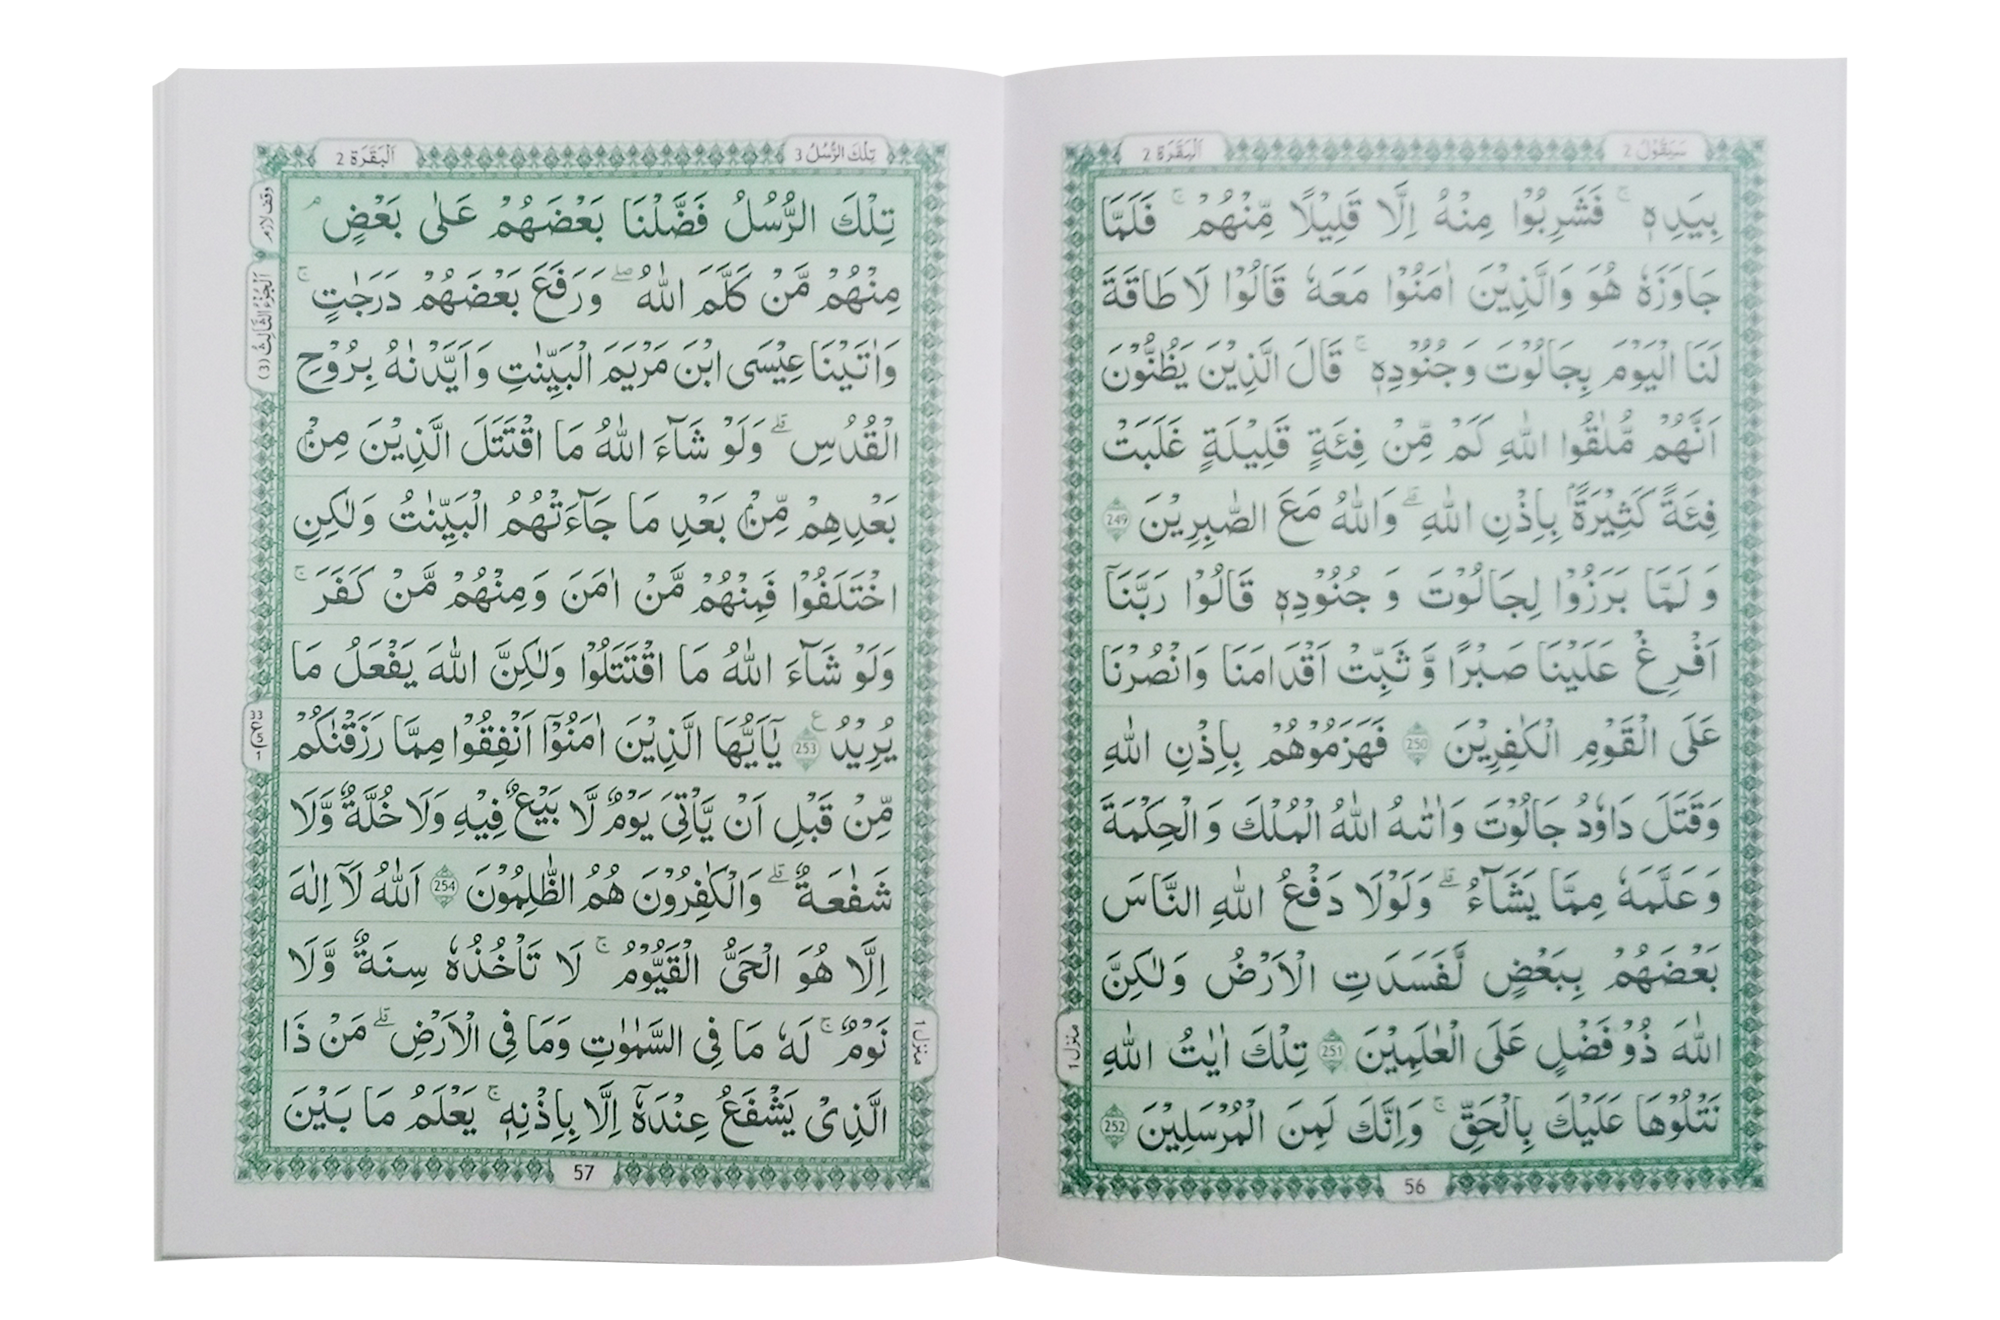 سَيَقُوْلُ 2
اَلْبَقَرَة 2
بِيَدِهٖ ۚ فَشَرِبُوْا مِنْهُ اِلَّا قَلِيْلًا مِّنْهُمْ ۚ فَلَمَّا
جَاوَزَهٗ هُوَ وَالَّذِيْنَ اٰمَنُوْا مَعَهٗ قَالُوْا لَا طَاقَةَ
لَنَا الْيَوْمَ بِجَالُوْتَ وَجُنُوْدِهٖ ۚ قَالَ الَّذِيْنَ يَظُنُّوْنَ
اَنَّهُمْ مُّلٰقُوا اللّٰهِ كَمْ مِّنْ فِئَةٍ قَلِيْلَةٍ غَلَبَتْ
فِئَةً كَثِيْرَةًۢ بِاِذْنِ اللّٰهِ ۗ وَاللّٰهُ مَعَ الصّٰبِرِيْنَ 249
وَلَمَّا بَرَزُوْا لِجَالُوْتَ وَجُنُوْدِهٖ قَالُوْا رَبَّنَآ
اَفْرِغْ عَلَيْنَا صَبْرًا وَّثَبِّتْ اَقْدَامَنَا وَانْصُرْنَا
عَلَى الْقَوْمِ الْكٰفِرِيْنَ 250 فَهَزَمُوْهُمْ بِاِذْنِ اللّٰهِ
وَقَتَلَ دَاوٗدُ جَالُوْتَ وَاٰتٰىهُ اللّٰهُ الْمُلْكَ وَالْحِكْمَةَ
وَعَلَّمَهٗ مِمَّا يَشَآءُ ۗ وَلَوْلَا دَفْعُ اللّٰهِ النَّاسَ
بَعْضَهُمْ بِبَعْضٍ لَّفَسَدَتِ الْاَرْضُ وَلٰكِنَّ
اللّٰهَ ذُوْ فَضْلٍ عَلَى الْعٰلَمِيْنَ 251 تِلْكَ اٰيٰتُ اللّٰهِ
نَتْلُوْهَا عَلَيْكَ بِالْحَقِّ ۚ وَاِنَّكَ لَمِنَ الْمُرْسَلِيْنَ 252
منزل 1
56
تِلْكَ الرُّسُلُ 3
اَلْبَقَرَة 2
تِلْكَ الرُّسُلُ فَضَّلْنَا بَعْضَهُمْ عَلٰى بَعْضٍ ۘ
مِنْهُمْ مَّنْ كَلَّمَ اللّٰهُ ۖ وَرَفَعَ بَعْضَهُمْ دَرَجٰتٍ ۚ
وَاٰتَيْنَا عِيْسَى ابْنَ مَرْيَمَ الْبَيِّنٰتِ وَاَيَّدْنٰهُ بِرُوْحِ
الْقُدُسِ ۗ وَلَوْ شَآءَ اللّٰهُ مَا اقْتَتَلَ الَّذِيْنَ مِنْۢ
بَعْدِهِمْ مِّنْۢ بَعْدِ مَا جَآءَتْهُمُ الْبَيِّنٰتُ وَلٰكِنِ
اخْتَلَفُوْا فَمِنْهُمْ مَّنْ اٰمَنَ وَمِنْهُمْ مَّنْ كَفَرَ ۚ
وَلَوْ شَآءَ اللّٰهُ مَا اقْتَتَلُوْا وَلٰكِنَّ اللّٰهَ يَفْعَلُ مَا
يُرِيْدُ ع 253 يٰٓاَيُّهَا الَّذِيْنَ اٰمَنُوْٓا اَنْفِقُوْا مِمَّا رَزَقْنٰكُمْ
مِّنْ قَبْلِ اَنْ يَّاْتِيَ يَوْمٌ لَّا بَيْعٌ فِيْهِ وَلَا خُلَّةٌ وَّلَا
شَفٰعَةٌ ۗ وَالْكٰفِرُوْنَ هُمُ الظّٰلِمُوْنَ 254 اَللّٰهُ لَآ اِلٰهَ
اِلَّا هُوَ الْحَيُّ الْقَيُّوْمُ ۚ لَا تَاْخُذُهٗ سِنَةٌ وَّلَا
نَوْمٌ ۚ لَهٗ مَا فِى السَّمٰوٰتِ وَمَا فِى الْاَرْضِ ۗ مَنْ ذَا
الَّذِيْ يَشْفَعُ عِنْدَهٗٓ اِلَّا بِاِذْنِهٖ ۚ يَعْلَمُ مَا بَيْنَ
وقف لازم
اَلْجُزْءُ الثَّالِثُ (3)
33
ع
5
1
منزل 1
57